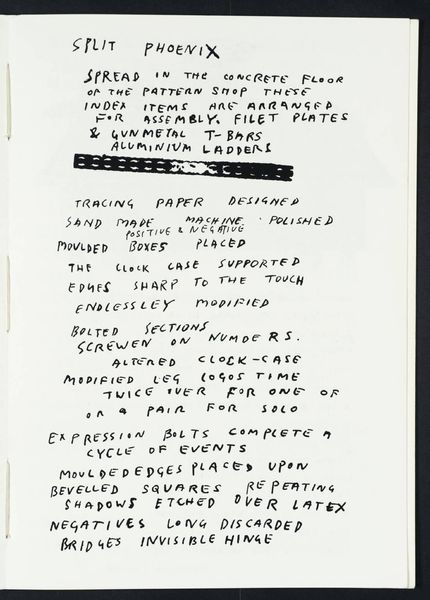 SPLIT PHOENIX
SPREAD IN THE CONCRETE FLOOR
OF THE PATTERN SHOP THESE
INDEX ITEMS ARE ARRANGED
FOR ASSEMBLY. FILET PLATES
& GUNMETAL T-BARS
ALUMINIUM LADDERS
TRACING PAPER DESIGNED
SAND MADE MACHINE POLISHED
POSITIVE & NEGATIVE
MOULDED BOXES PLACED
THE CLOCK CASE SUPPORTED
EDGES SHARP TO THE TOUCH
ENDLESSLEY MODIFIED
BOLTED SECTIONS
SCREWEN ON NUMDERS.
ALTERED CLOCK-CASE
MODIFIED LEG LOGOS TIME
TWICE OVER FOR ONE OF
OR A PAIR FOR SOLO
EXPRESSION BOLTS COMPLETE A
CYCLE OF EVENTS
MOULDED EDGES PLACED UPON
BEVELLED SQUARES REPEATING
SHADOWS ETCHED OVER LATEX
NEGATIVES LONG DISCARDED
BRIDGES INVISIBLE HINGE